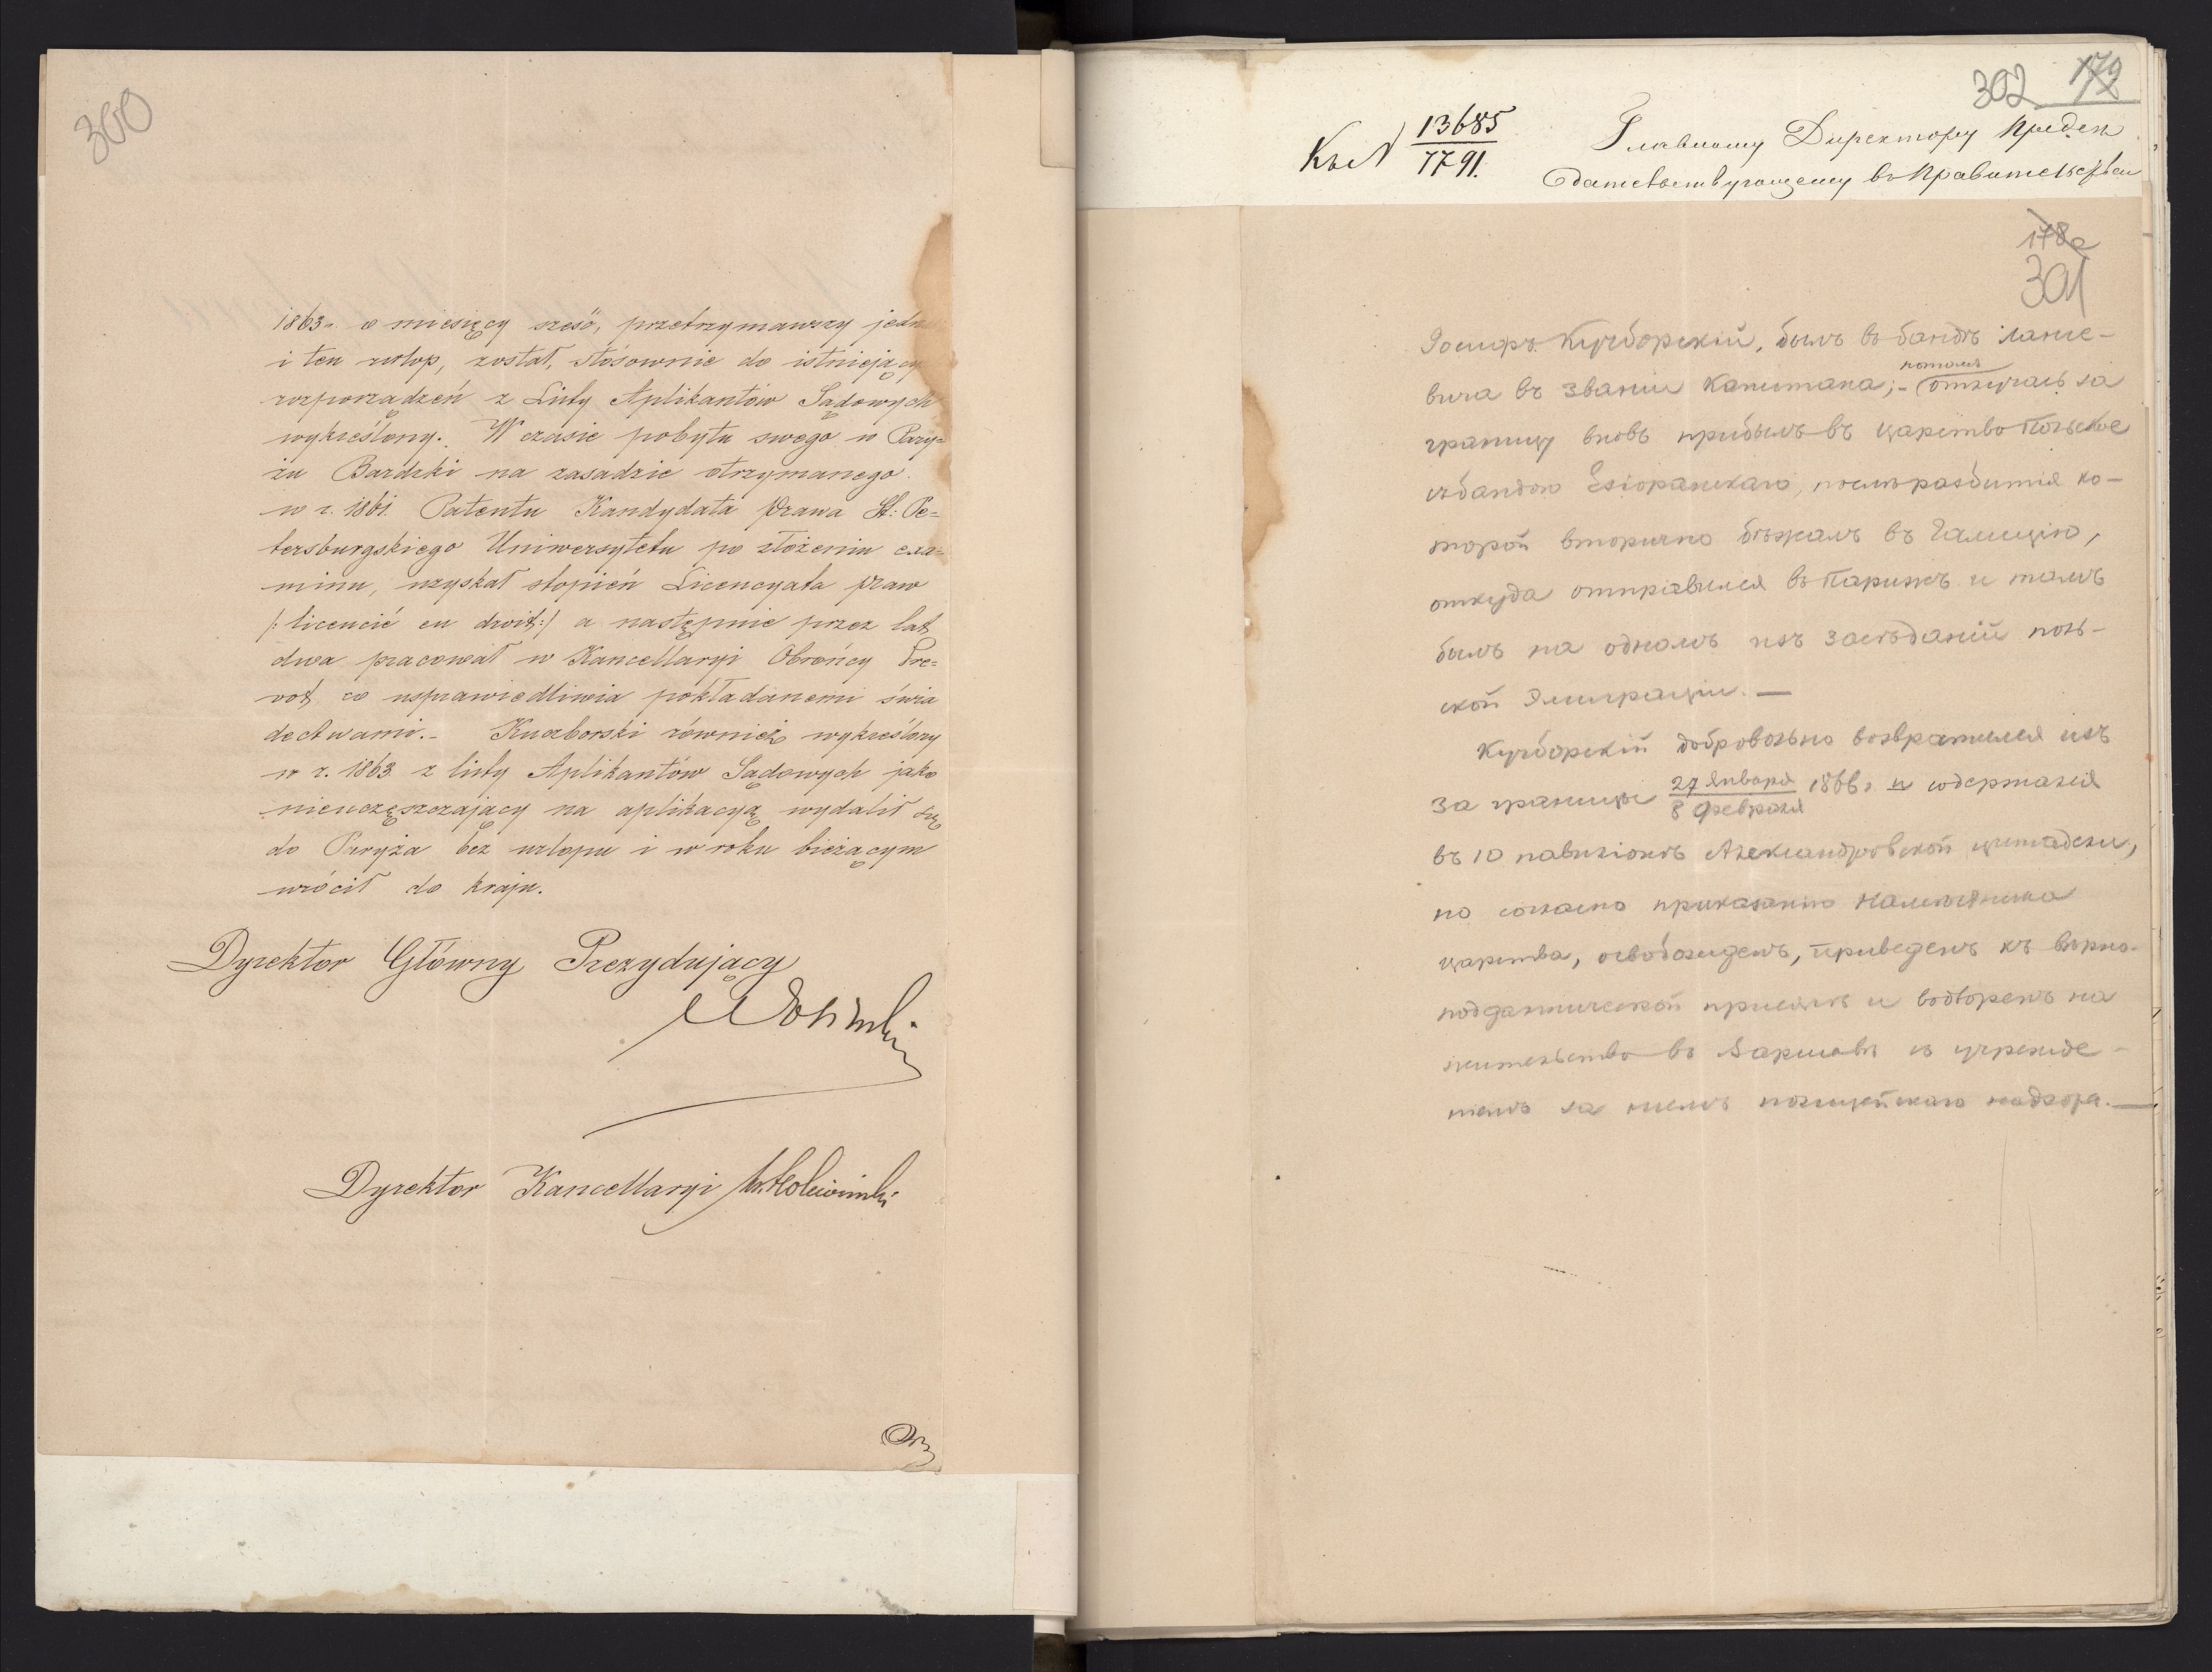 300
1863 r. o miesięcy sześć, przetrzymawszy jedn
i ten urlop, został, stósownie do istniejący
rozporządzeń z Listy Aplikantów Sądowych
wykreślony. W czasie pobytu swego w Pary=
żu Bardzki na zasadzie otrzymanego
w r. 1861 Patentu Kandydata Prawa St: Pe=
tersburgskiego Uniwersytetu po złożeniu exa=
minu, uzyskał stopień Licencyata praw
/: licencié en droit :/ a następnie przez lat
dwa pracował w Kancellaryi Obrońcy Pre=
vot, co usprawiedliwia pokładanemi świa
dectwami.- Kuczborski również wykreślony
w r. 1863 z listy Aplikantów Sądowych jako
nieuczęszczający na aplikacyą wydalił się
do Paryża bez urlopu i w roku bieżącym
wrócił do kraju.
Dyrektor Główny Prezydujący
Dyrektor Kancellaryi
302 179
13685
7791.
Главному Директору Предсѣ
дательствующему въ Правительствен
178а
301
Іосифъ Кучборскій, былъ въ бандѣ Ланге-
вича въ званіи Капитана;- потомъ отлучась за
границу вновь прибылъ въ Царство Польское
съ бандою Езіоранскаго, послѣ разбитія ко-
торой вторично бѣжалъ въ Галицію,
откуда отправился въ Парижъ и тамъ
былъ на одномъ изъ засѣданій поль-
ской Эмиграціи. —
Кучборскій добровольно возвратился изъ
За границы 27 Января / 8 Февраля 1866 г. и содержался
въ 10 павиліонѣ Александровской цитадели,
но согласно приказанію Намѣстника
царства, освобожденъ, приведенъ къ вѣрно-
подданнической присягѣ и водворенъ на
жительство въ Варшавѣ съ учрежде-
ніемъ за нимъ полицейскаго надзора.—